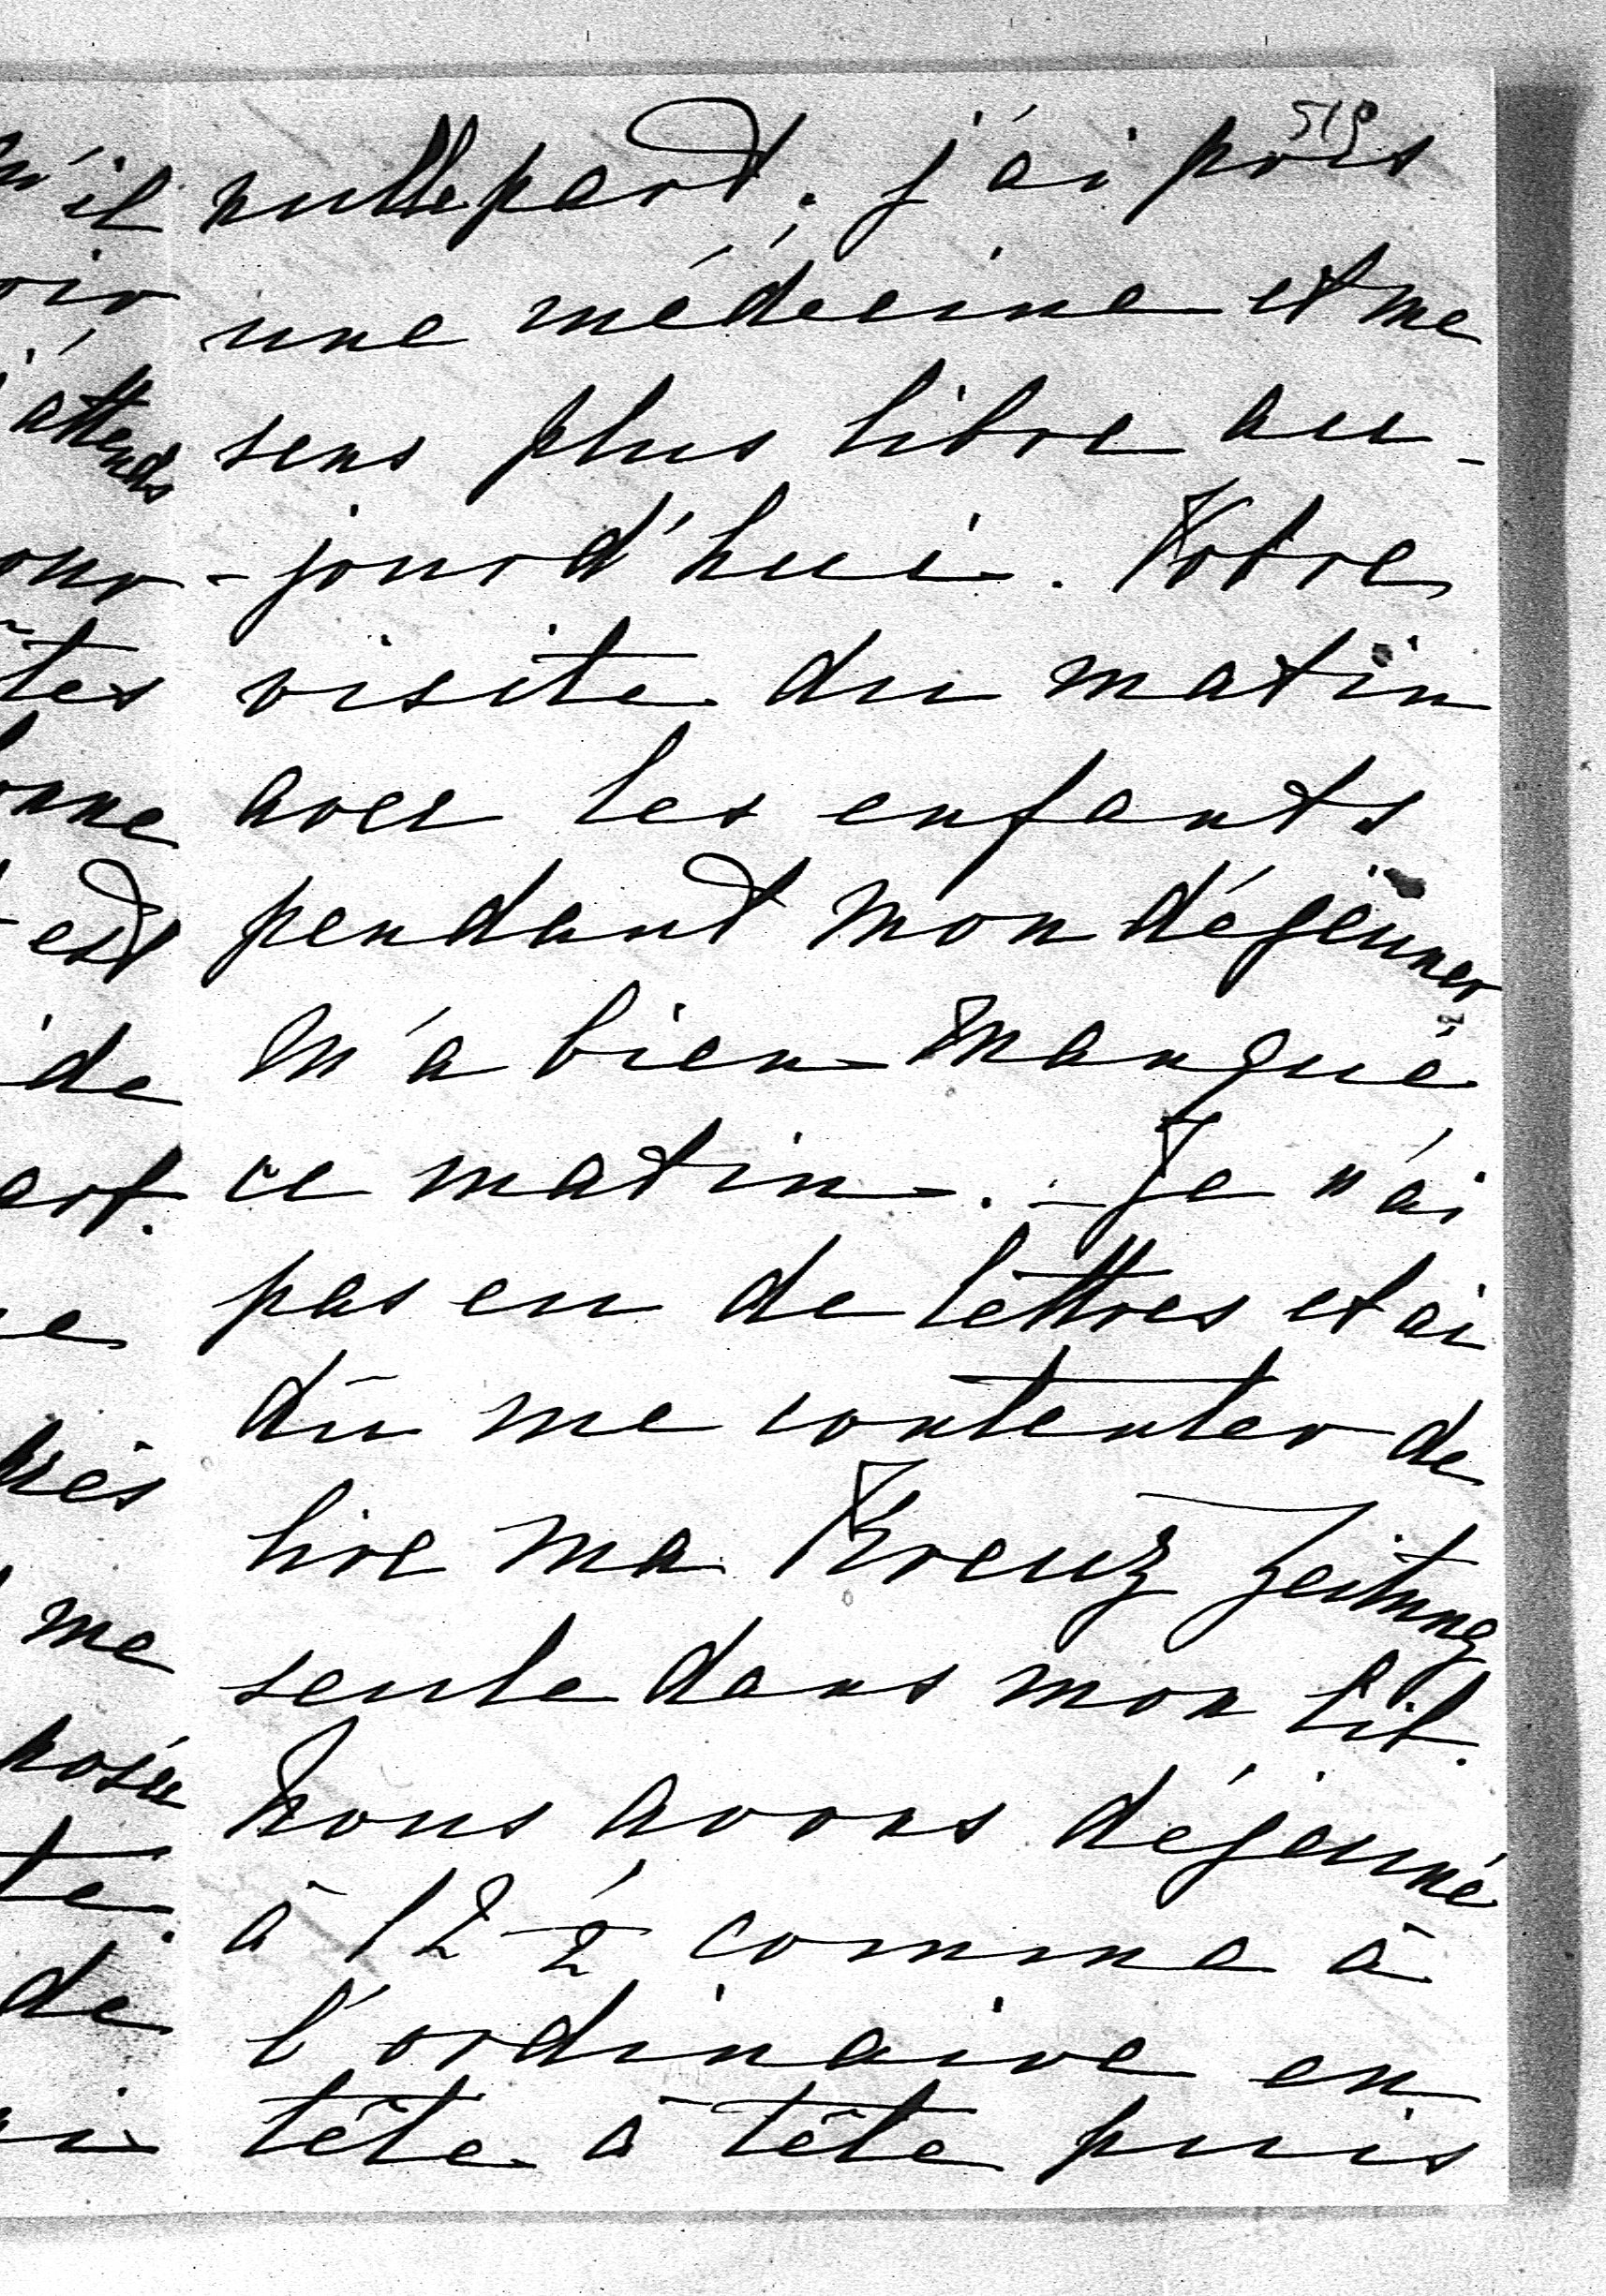 519
nulle part. j'ai pris
une médecine et me
sens plus libre au-
-jourd'hui. Votre
visite du matin
avec les enfants
pendant mon déjeuner
m'a bien manqué
ce matin. - Je n'ai
pas eu de lettres et ai
dû me contenter de
lire ma Kreuz Zeitung
seule dans mon lit.
Nous avons déjeuné
à 12 1/2 comme à
l'ordinaire en
tête à tête puis